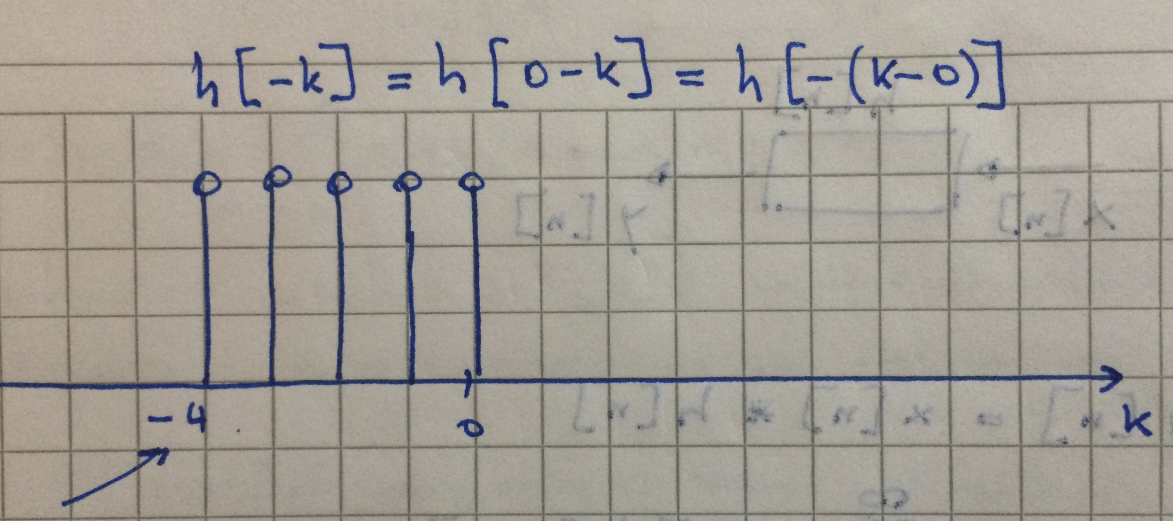 h[-k] = h[0-k] = h[-(k-0)]
-4 0 k